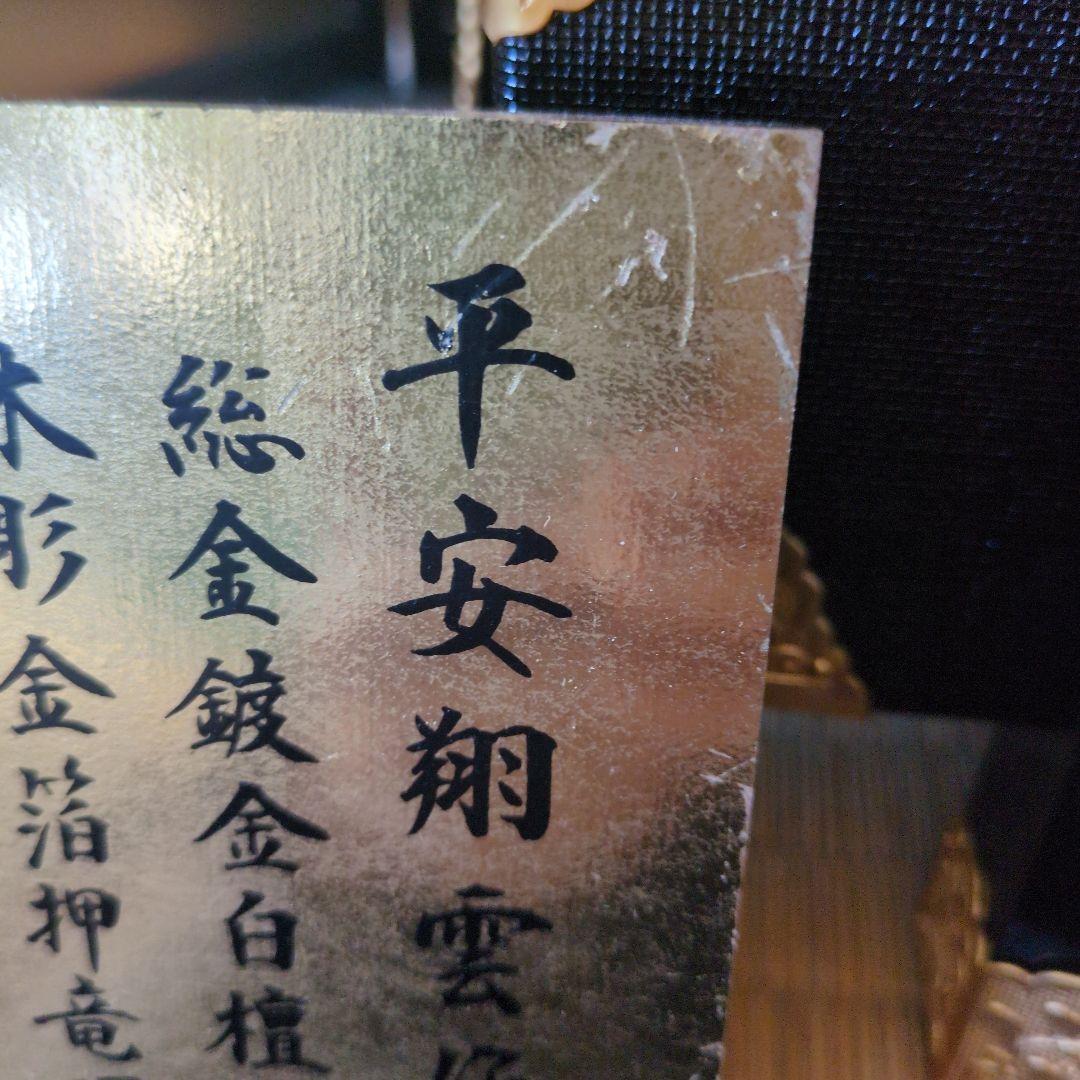 平安翔雲
総金鍍金白檀
木彫金箔押竜